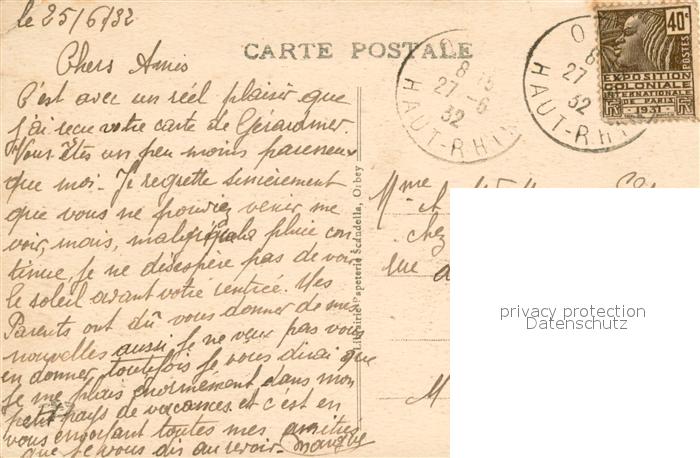 le 25/6/32
CARTE POSTALE
Chers Amis
C'est avec un réel plaisir que
j'ai reçu votre carte de Gérardmer.
Vous êtes un peu moins paresseux
que moi. Je regrette sincèrement
que vous ne pouviez venir me
voir, mais, malgré la pluie con-
tinue, je ne désespère pas de voir
le soleil avant votre rentrée. Mes
Parents ont dû vous donner de mes
nouvelles aussi je ne veux pas vous
en donner, toutefois je vous dirai que
je me plais énormément dans mon
petit pays de vacances et c'est en
vous envoyant toutes mes amitiés
que je vous dis au revoir.
Librairie Papeterie Scandella, Orbey
8
27-6
32
HAUT-RHIN
8
27-6
32
HAUT-RHIN
40c
POSTES
EXPOSITION
COLONIALE
INTERNATIONALE
DE PARIS
1931
Mme
chez
rue
M
privacy protection
Datenschutz